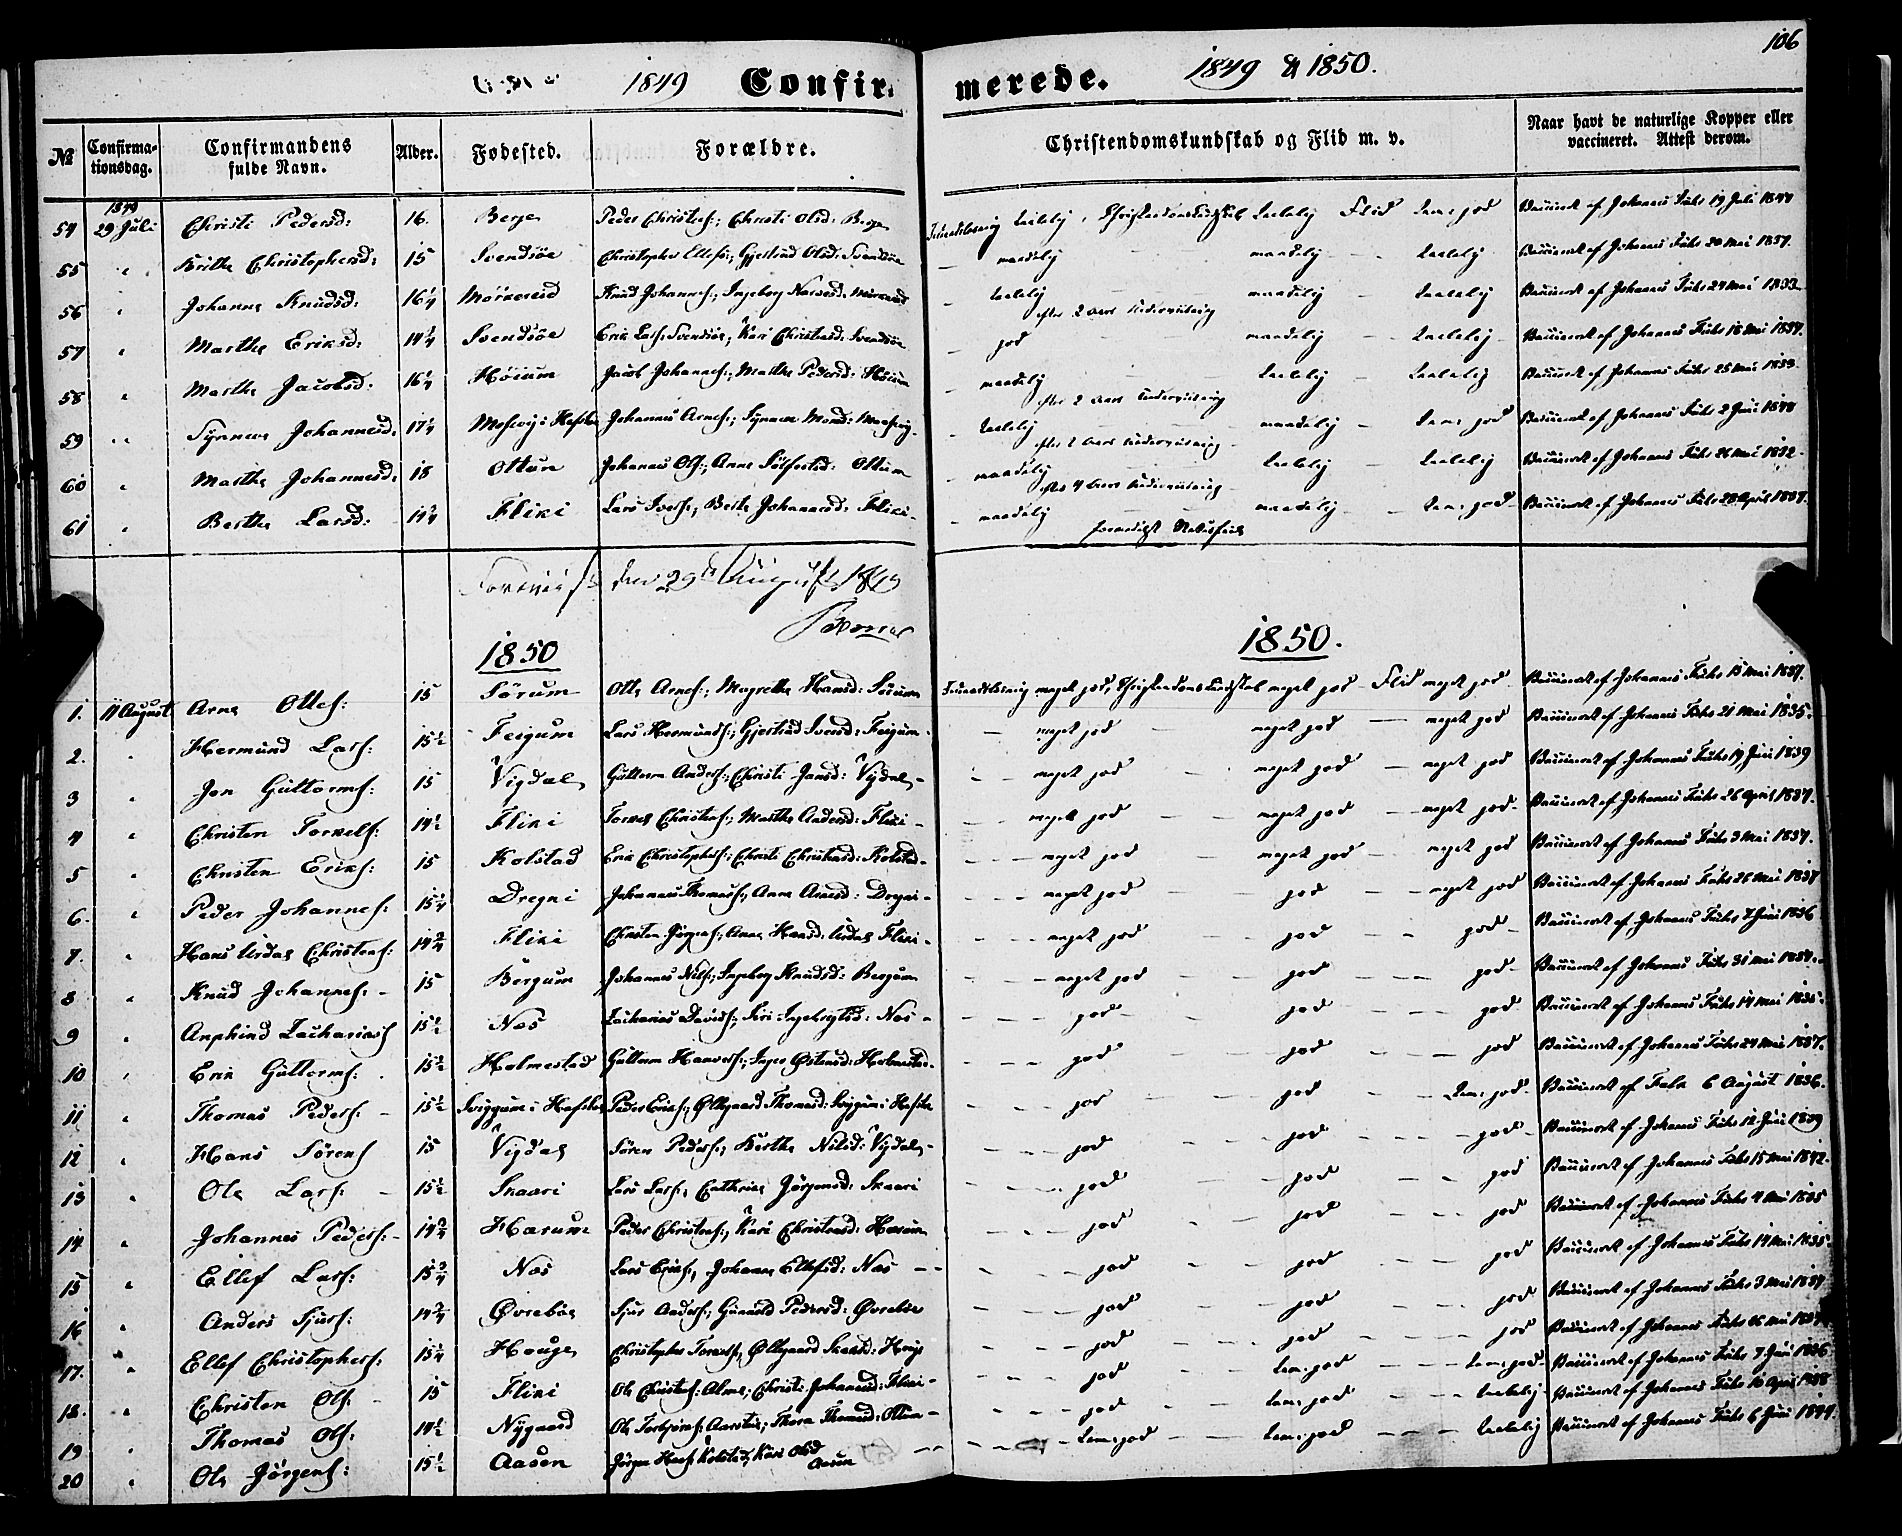 106
1849 Confir- merede. 1849 & 1850.
№ Confirma-tionsdag. Confirmandens fulde Navn. Alder. Fødested. Forældre. Christendomskundskab og Flid m. v. Naar havt de naturlige Kopper eller vaccineret. Attest derom.
1849
54 29 Juli Christi Pedersd: 16. Berge Peder Christens:, Christi Olsd: Berge taalelig, Christendomskundskab taalelig Flid tem: god Vaccineret af Johannes Fuhr 19 Juli 1844
55 " Brithe Christophersd: 15 Svendsøe Christopher Ellefs:, Gjertrud Olsd: Svendsøe — maadelig maadelig — taalelig Vaccineret af Johannes Fuhr 20 Mai 1837.
56 " Johanne Knudsd: 16¼ Mørkereid Knud Johannes:, Ingeborg — taalelig efter 2 Aars Underviisning maadelig — taalelig Vaccineret af Johannes Fuhr 24 Mai 1833
57 " Marthe Eriksd: 14¾ Svendsøe Erik Lars: Svendsøe, Kari Christensd: Svendsøe — god maadelig — taalelig Vaccineret af Johannes Fuhr 18 Mai 1837.
58 " Marthe Jacobsd: 16¼ Høium Jacob Johannes:, Marthe Pedersd: Høium — maadelig efter 2 Aars Underviisning taalelig — taalelig Vaccineret af Johannes Fuhr 25 Mai 1833.
59 " Synneve Johannesd: 17¼ Johannes Arnes:, Synneve — taalelig efter 2 Aars Underviisning maadelig — tem: god Vaccineret af Johannes Fuhr 2 Juni 1844
60 " Marthe Johannesd: 18 Ottum Johannes Ols:, Anne Ottum — maadelig efter 4 Aars Underviisning taalelig — taalelig Vaccineret af Johannes Fuhr 26 Mai 1832
61 " Berthe Larsd: 14¾ Fliki Lars Ivers:, Berthe Johannesd: Fliki — maadelig maadelig — tem: god Vaccineret af Johannes Fuhr 28 April 1837.
den 29de August 1849
1850 1850.
1. 11 August Arne Ottes: 15 Sørum Otte Arnes:, Magrethe Hansd: Sørum meget god, Christendomskundskab meget god — Flid meget god Vaccineret af Johannes Fuhr 15 Mai 1837.
2. " Hermund Lars: 15½ Feigum Lars Hermunds:, Gjertrud Iversd: Feigum — meget god meget god — meget god Vaccineret af Johannes Fuhr 21 Mai 1835.
3 " Jon Guttorms: 15 Vigdal Guttorm Anders:, Christi Jonsd: Vigdal — meget god meget god — meget god Vaccineret af Johannes Fuhr 19 Juni 1839
4 " Christen Torkels: 14½ Fliki Torkel Christens:, Marthe Andersd: Fliki — meget god meget god — meget god Vaccineret af Johannes Fuhr 26 April 1837.
5 " Christen Eriks: 15 Kolstad Erik Christophers:, Christi Christensd: Kolstad — meget god meget god — meget god Vaccineret af Johannes Fuhr 3 Mai 1837.
6. " Peder Johannes: 15¼ Dregni Johannes Thomas:, Anne Arnesd: Dregni — meget god god — meget god Vaccineret af Johannes Fuhr 26 Mai 1837
7. " Hans Urdal Christens: 14¾ Fliki Christen Jørgens:, Anne Hansd: Urdal Fliki — meget god god — god Vaccineret af Johannes Fuhr 7 Juni 1836
8 " Knud Johannes: 15 Bergum Johannes Nils:, Ingeborg Knudsd: Bergum — meget god god — god Vaccineret af Johannes Fuhr 31 Mai 1837.
9 " Anphind Zacharias: 15½ Nes Zacharias Davids:, Siri Nes — god god — god Vaccineret af Johannes Fuhr 14 Mai 1835
10 " Erik Guttorms: 15½ Holmestad Guttorm Inger Østensd: Holmestad — god god — god Vaccineret af Johannes Fuhr 24 Mai 1837.
11 " Thomas Peders: 15½ Sviggum i Hafslo Peder Eriks:, Øllegaard Thomasd: Sviggum i Hafslo — god god — tem: god Vaccineret af 6 August 1836.
12 " Hans Sørens: 15 Vigdal Søren Peders:, Birthe Nilsd: Vigdal — god god — god Vaccineret af Johannes Fuhr 12 Juni 1839
13 " Ole Lars: 15½ Skaari Lars Lars:, Cathrine Jørgensd: Skaari — god god — god Vaccineret af Johannes Fuhr 15 Mai 1842.
14 " Johannes Peders: 14¾ Harum Peder Christens:, Kari Christensd: Harum — god god — god Vaccineret af Johannes Fuhr 4 Mai 1835
15 " Ellef Lars: 15¾ Nes Lars Eriks:, Johanne Ellefsd: Nes — god god — god Vaccineret af Johannes Fuhr 14 Mai 1835.
16 " Anders Sjurs: 14¾ Øvrebøe Sjur Anders:, Gunnild Pedersd: Øvrebøe — god god — god Vaccineret af Johannes Fuhr 3 Mai 1837
17. " Ellef Christophers: 15¼ Hauge Christopher Torkels:, Øllegaard Hauge — god god — god Vaccineret af Johannes Fuhr 26 Mai 1837
18. " Christen Ols: 15 Fliki Ole Christens: Alme, Christi Johannesd: Fliki — god tem: god — tem: god Vaccineret af Johannes Fuhr 7 Juni 1836
19 " Thomas Ols: 14½ Nygaard Ole Torbjørns: Thora Thomasd: Ottum — god tem: god — taalelig Vaccineret af Johannes Fuhr 10 April 1838
20 " Ole Jørgens: 15½ Aasen Jørgen Hans: Kolstad, Kari Olsd Aasen — tem: god tem: god — taalelig Vaccineret af Johannes Fuhr 6 Juni 1844.